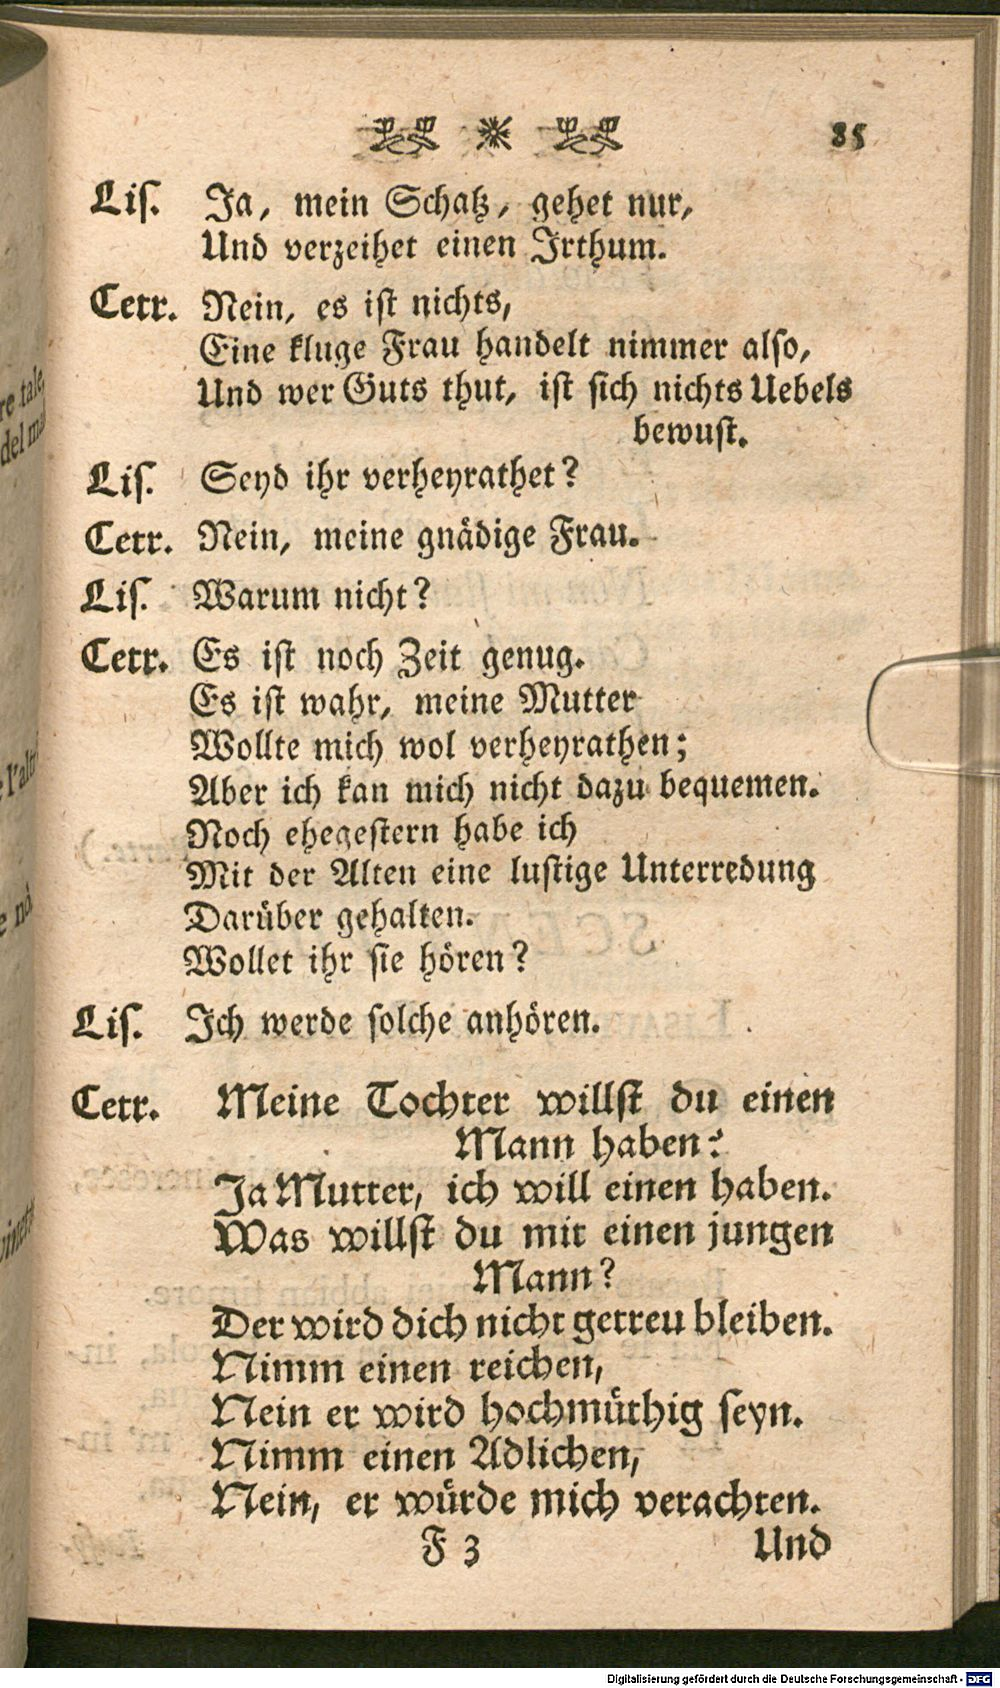 85
Lis. Ja, mein Schatz, gehet nur,
Und verzeihet einen Irthum.
Cerr. Nein, es ist nichts,
Eine kluge Frau handelt nimmer also,
Und wer Guts thut, ist sich nichts Uebels
bewust.
Lis. Seyd ihr verheyrathet?
Cerr. Nein, meine gnädige Frau.
Lis. Warum nicht?
Cerr. Es ist noch Zeit genug.
Es ist wahr, meine Mutter
Wollte mich wol verheyrathen;
Aber ich kan mich nicht dazu bequemen.
Noch ehegestern habe ich
Mit der Alten eine lustige Unterredung
Darüber gehalten.
Wollet ihr sie hören?
Lis. Ich werde solche anhören.
Cerr. Meine Tochter willst du einen
Mann haben?
Ja Mutter, ich will einen haben.
Was willst du mit einen jungen
Mann?
Der wird dich nicht getreu bleiben.
Nimm einen reichen,
Nein er wird hochmüthig seyn.
Nimm einen Adlichen,
Nein, er würde mich verachten.
F 3 Und
re tale,
del mal
Digitalisierung gefördert durch die Deutsche Forschungsgemeinschaft - DFG